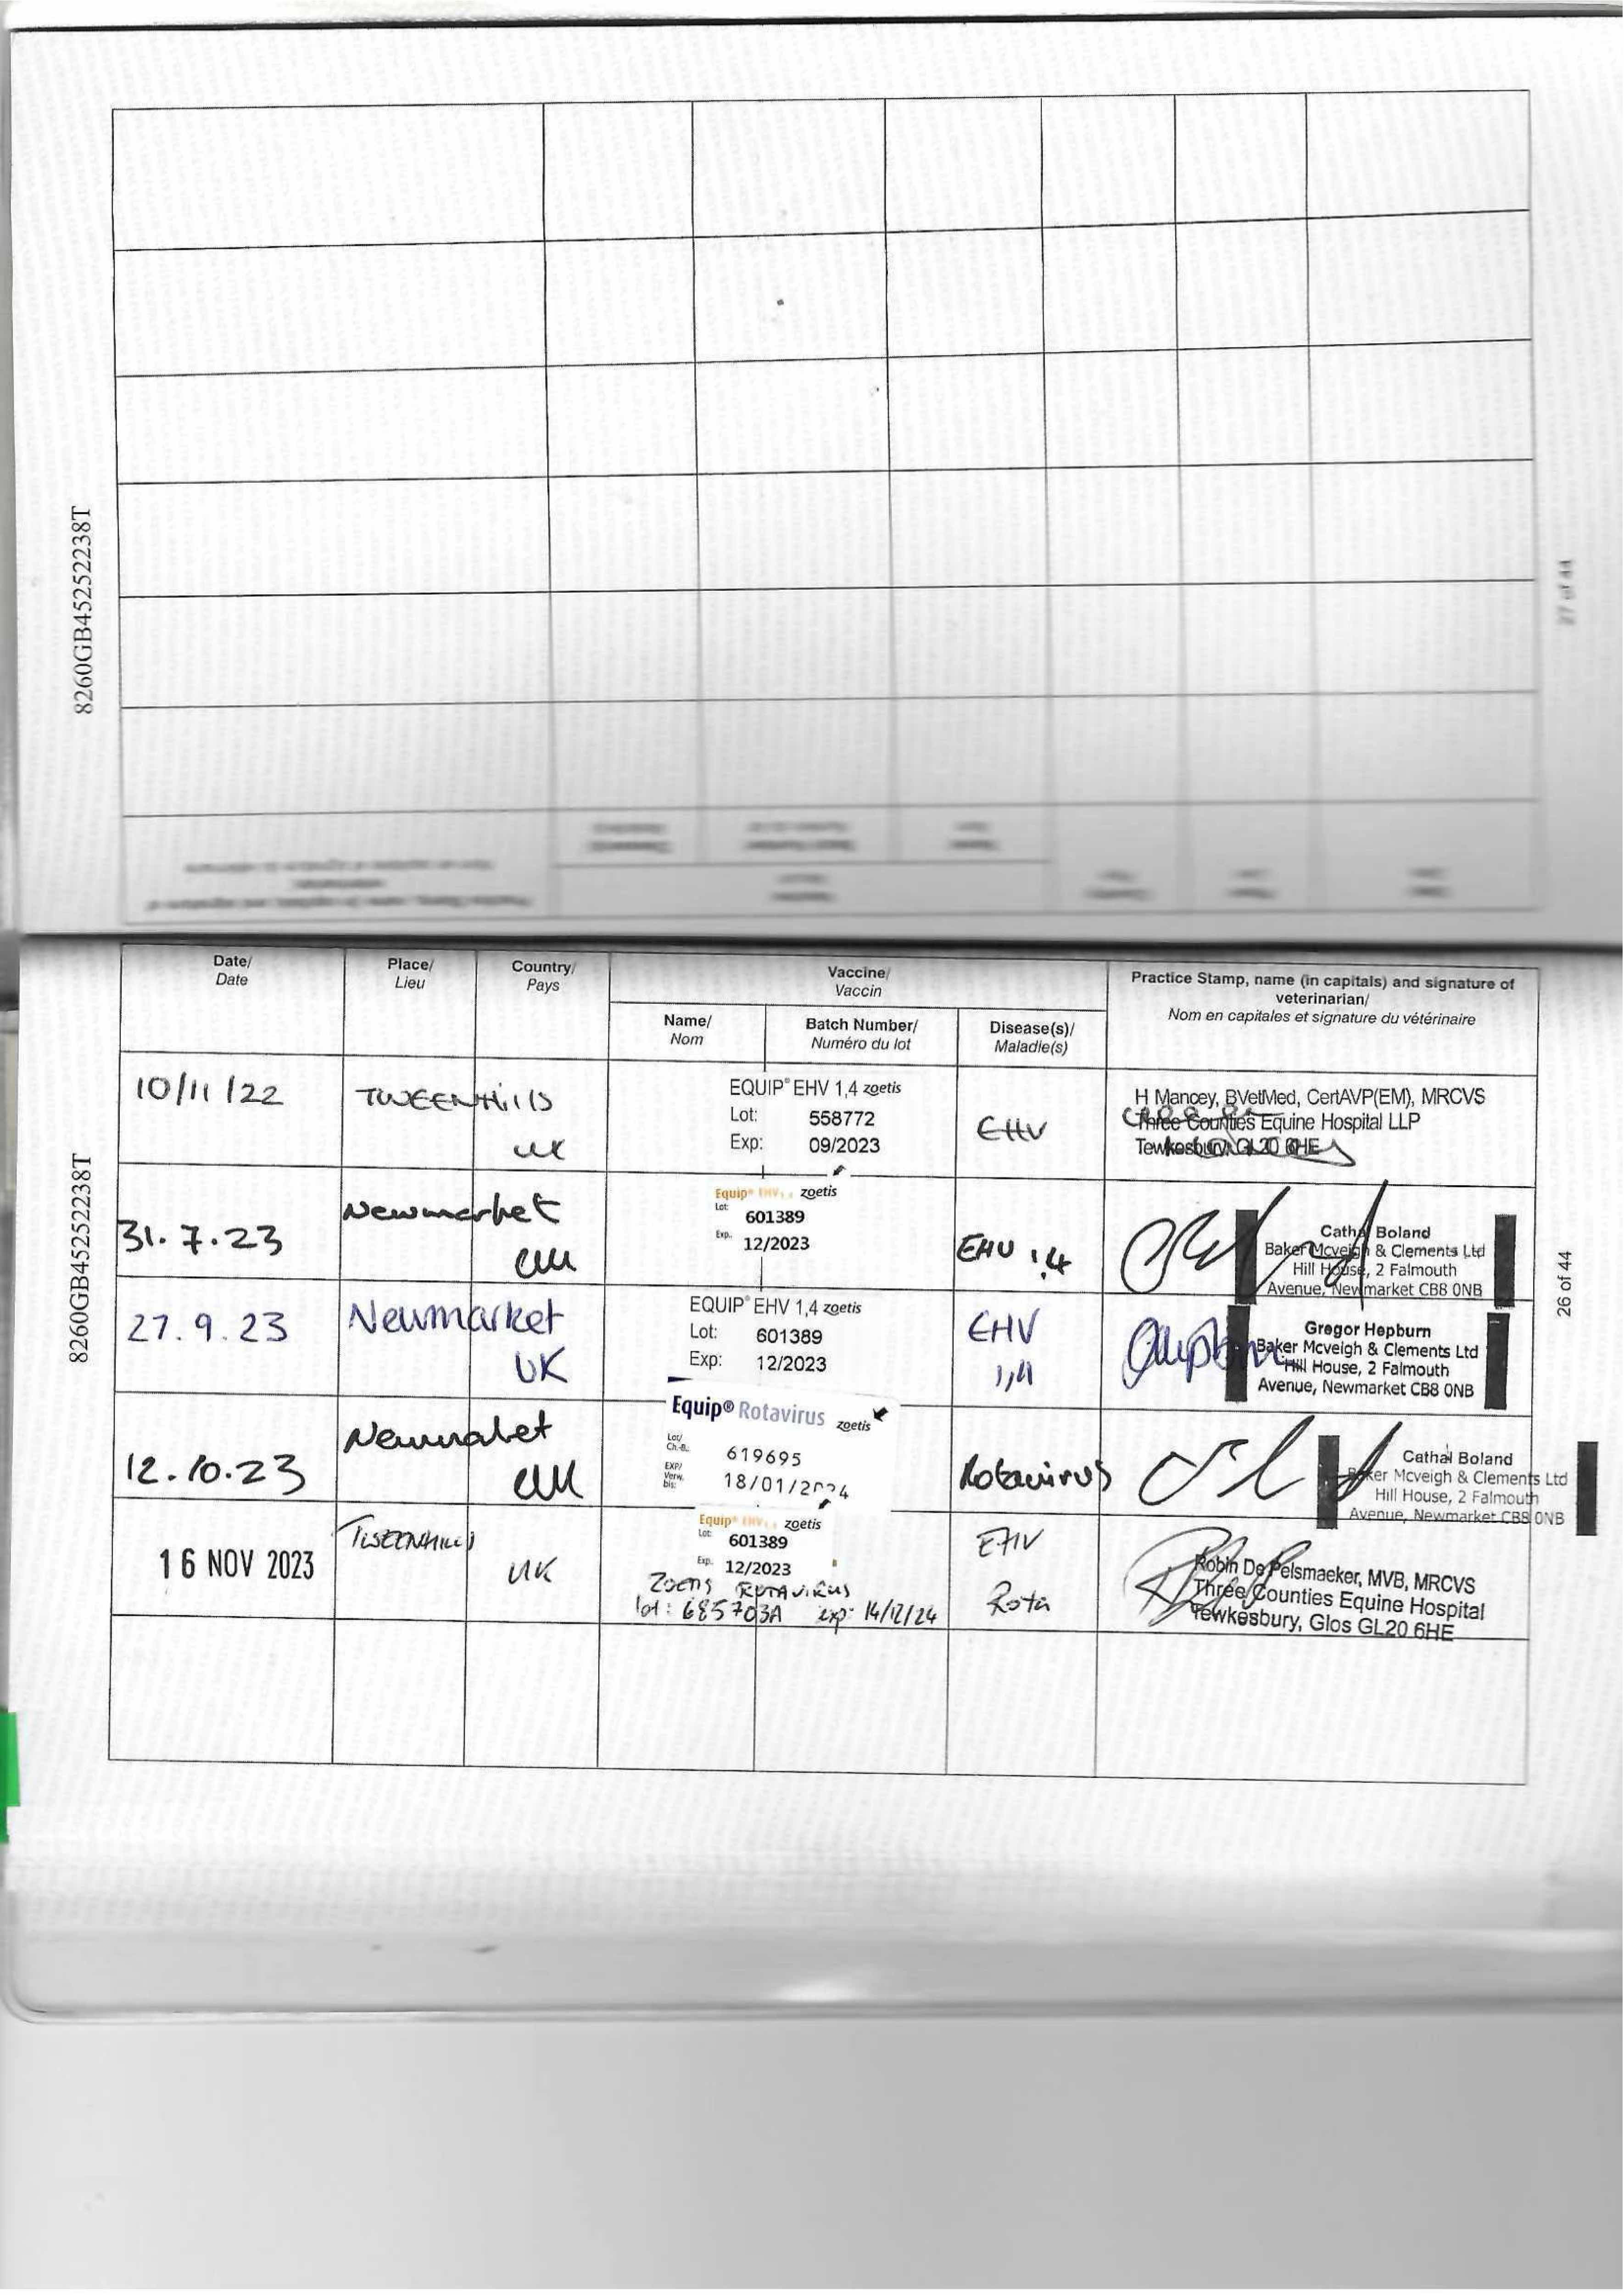 8260GB45252238T
27 of 44
Date/
Date
Place/
Lieu
Country/
Pays
Vaccine/
Vaccin
Name/
Nom
Batch Number/
Numéro du lot
Disease(s)/
Maladie(s)
Practice Stamp, name (in capitals) and signature of
veterinarian/
Nom en capitales et signature du vétérinaire
10/11/22
TWEENHills
UK
EQUIP® EHV 1,4 zoetis
Lot: 558772
Exp: 09/2023
EHV
H Mancey, BVetMed, CertAVP(EM), MRCVS
Three Counties Equine Hospital LLP
Tewkesbury, GL20 6HE
31.7.23
Newmarket
UK
Equip® EHV 1,4 zoetis
Lot: 601389
Exp. 12/2023
EHV 1.4
Cathal Boland
Baker Mcveigh & Clements Ltd
Hill House, 2 Falmouth
Avenue, Newmarket CB8 0NB
27.9.23
Newmarket
UK
EQUIP® EHV 1,4 zoetis
Lot: 601389
Exp: 12/2023
EHV
1,4
Gregor Hepburn
Baker Mcveigh & Clements Ltd
Hill House, 2 Falmouth
Avenue, Newmarket CB8 0NB
12.10.23
Newmarket
UK
Equip® Rotavirus zoetis
Lot/
Ch.-B.: 619695
EXP/
Verw.
bis: 18/01/2024
Rotavirus
Cathal Boland
Baker Mcveigh & Clements Ltd
Hill House, 2 Falmouth
Avenue, Newmarket CB8 0NB
16 NOV 2023
TWEENHILLS
UK
Equip® EHV 1,4 zoetis
Lot: 601389
Exp. 12/2023
Zoetis ROTAVIRUS
lot: 685703A exp: 14/12/24
EHV
Rota
Robin De Pelsmaeker, MVB, MRCVS
Three Counties Equine Hospital
Tewkesbury, Glos GL20 6HE
8260GB45252238T
26 of 44